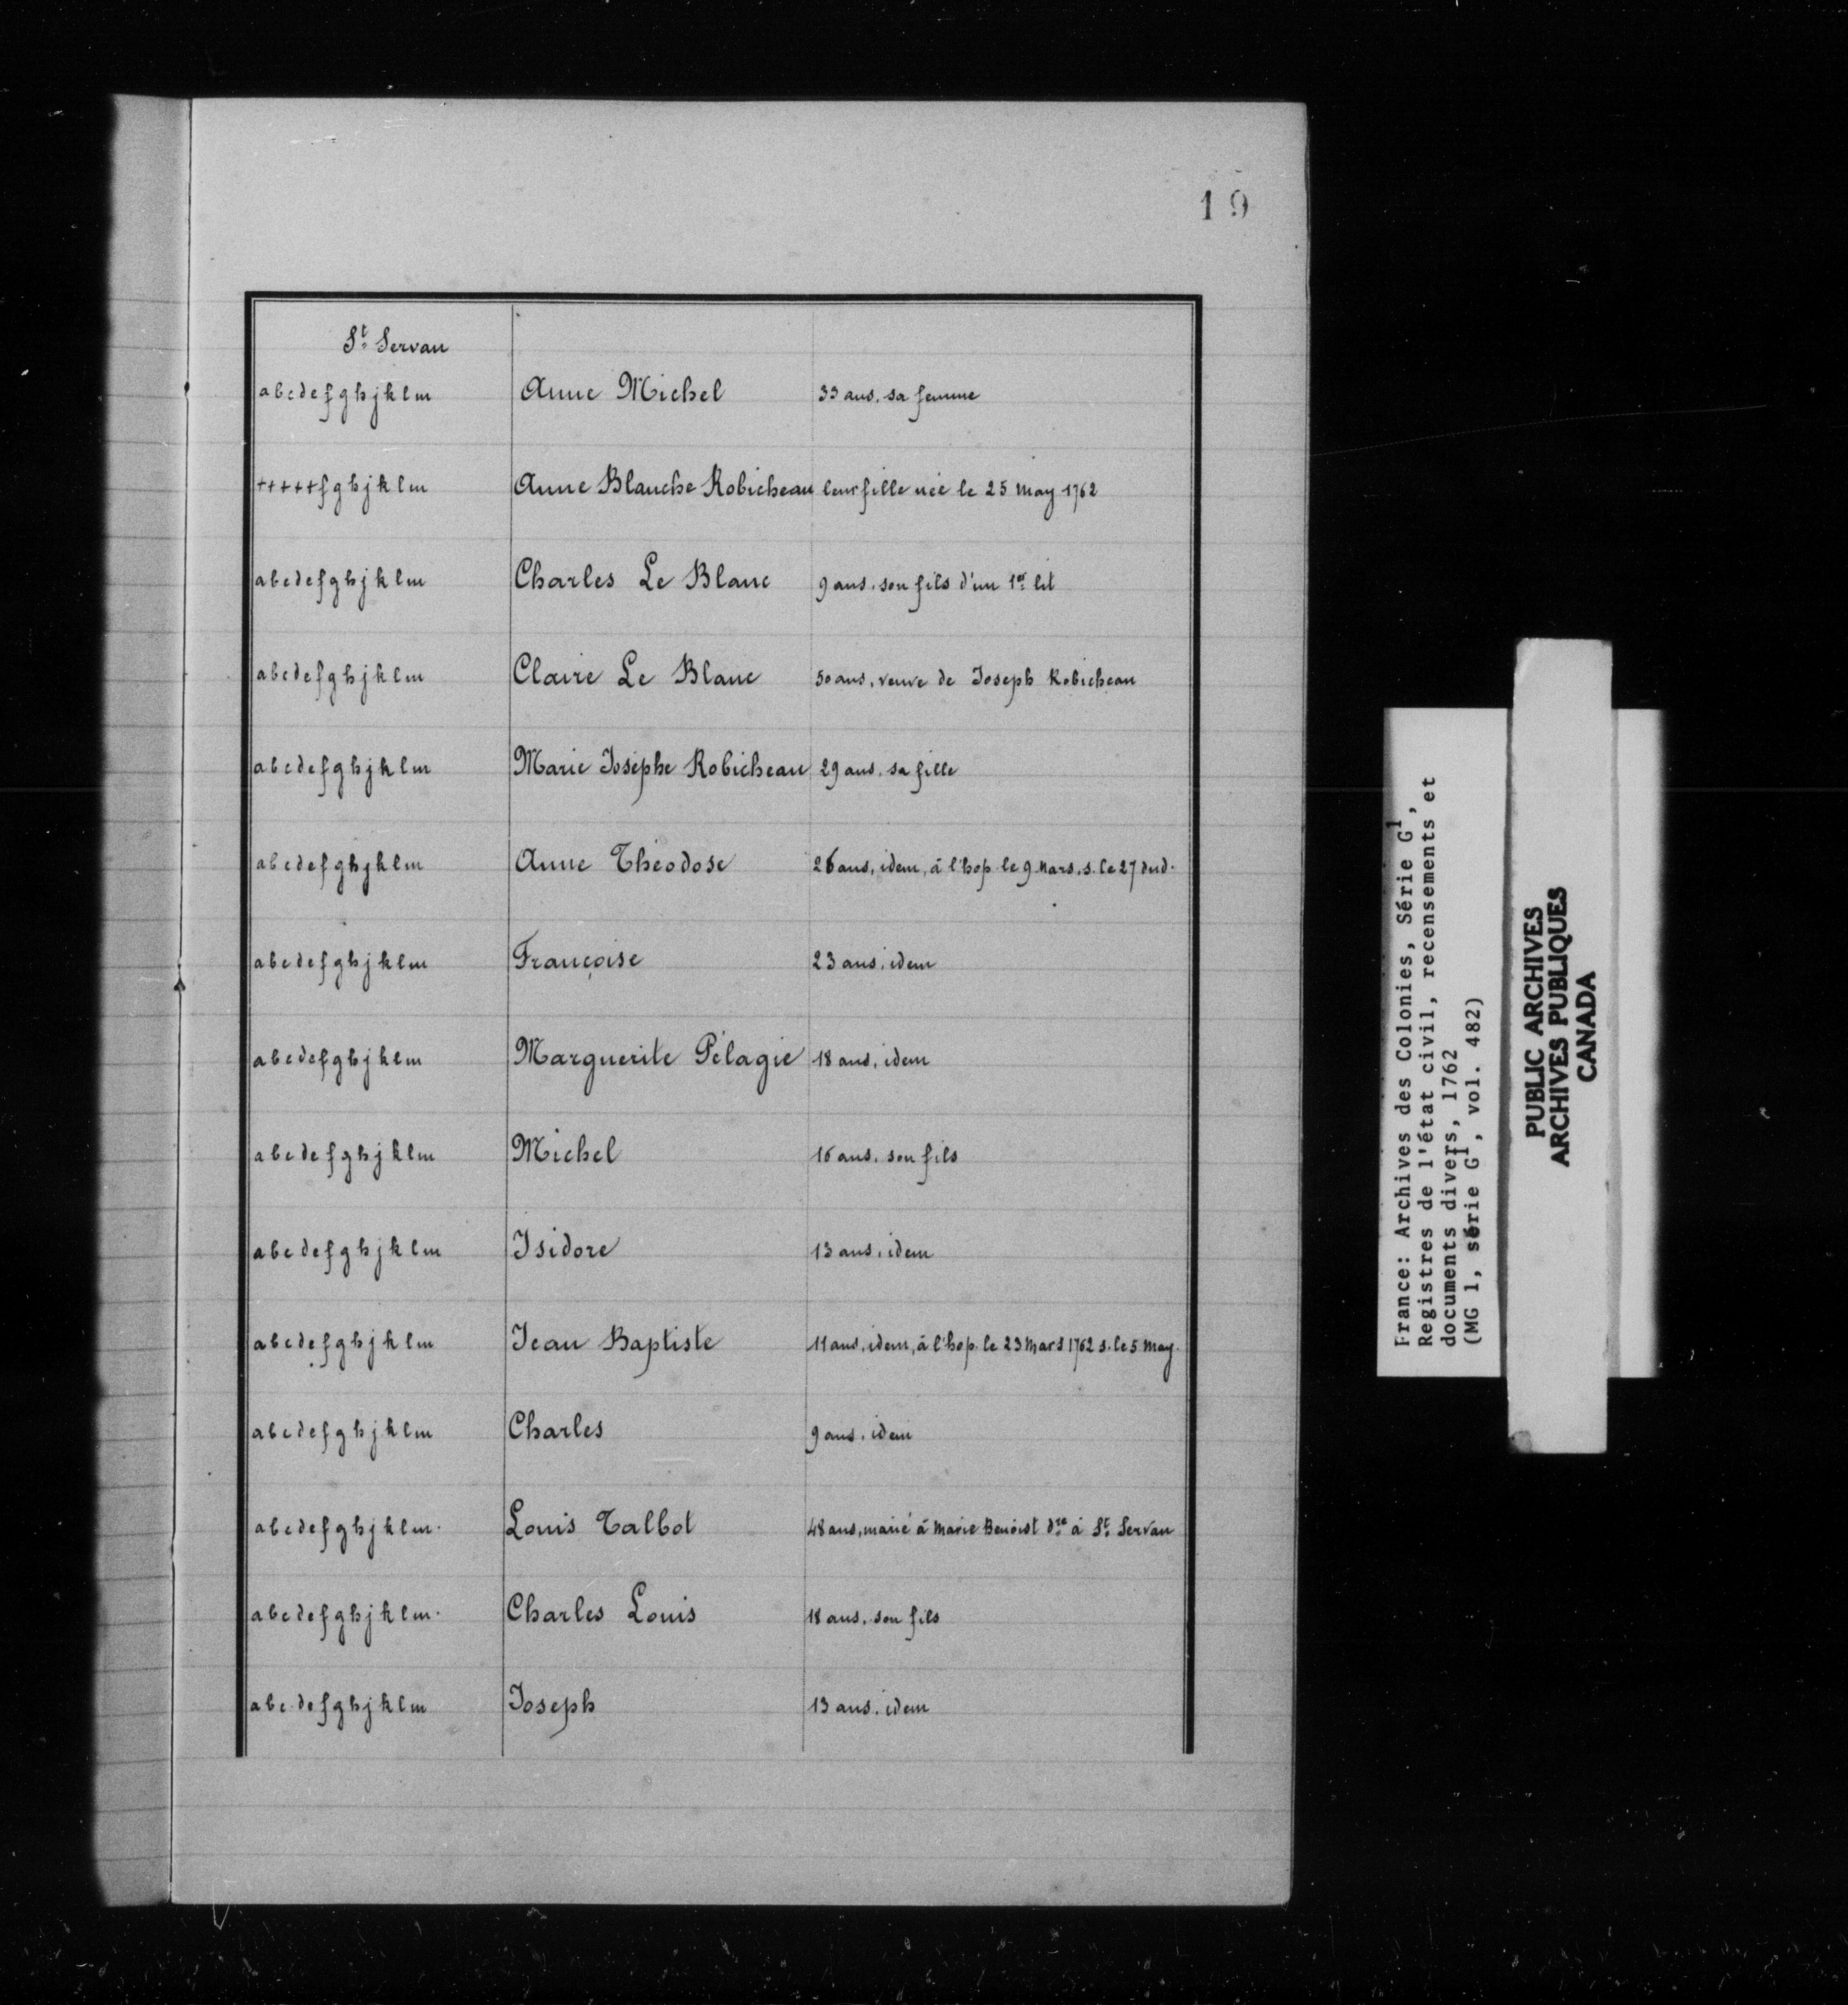 19
St Servan
abcdefghjklm Anne Michel 33 ans, sa femme
+++++fghjklm Anne Blanche Robicheau leur fille née le 25 May 1762
abcdefghjklm Charles Le Blanc 9 ans, son fils d'un 1er lit
abcdefghjklm Claire Le Blanc 50 ans, veuve de Joseph Robicheau
abcdefghjklm Marie Josèphe Robicheau 29 ans, sa fille
abcdefghjklm Anne Théodose 26 ans, idem, à l'hop. le 9 Mars, s. le 27 dud.
abcdefghjklm Françoise 23 ans, idem
abcdefghjklm Marguerite Pélagie 18 ans, idem
abcdefghjklm Michel 16 ans, son fils
abcdefghjklm Isidore 13 ans, idem
abcdefghjklm Jean Baptiste 11 ans, idem, à l'hop. le 23 Mars 1762 s. le 5 May.
abcdefghjklm Charles 9 ans, idem
abcdefghjklm. Louis Talbot 48 ans, marié à Marie Benoist dre à St Servan
abcdefghjklm. Charles Louis 18 ans, son fils
abcdefghjklm Joseph 13 ans, idem
France: Archives des Colonies, Série G1,
Registres de l'état civil, recensements et
documents divers, 1762
(MG 1, série G1, vol. 482)
PUBLIC ARCHIVES
ARCHIVES PUBLIQUES
CANADA